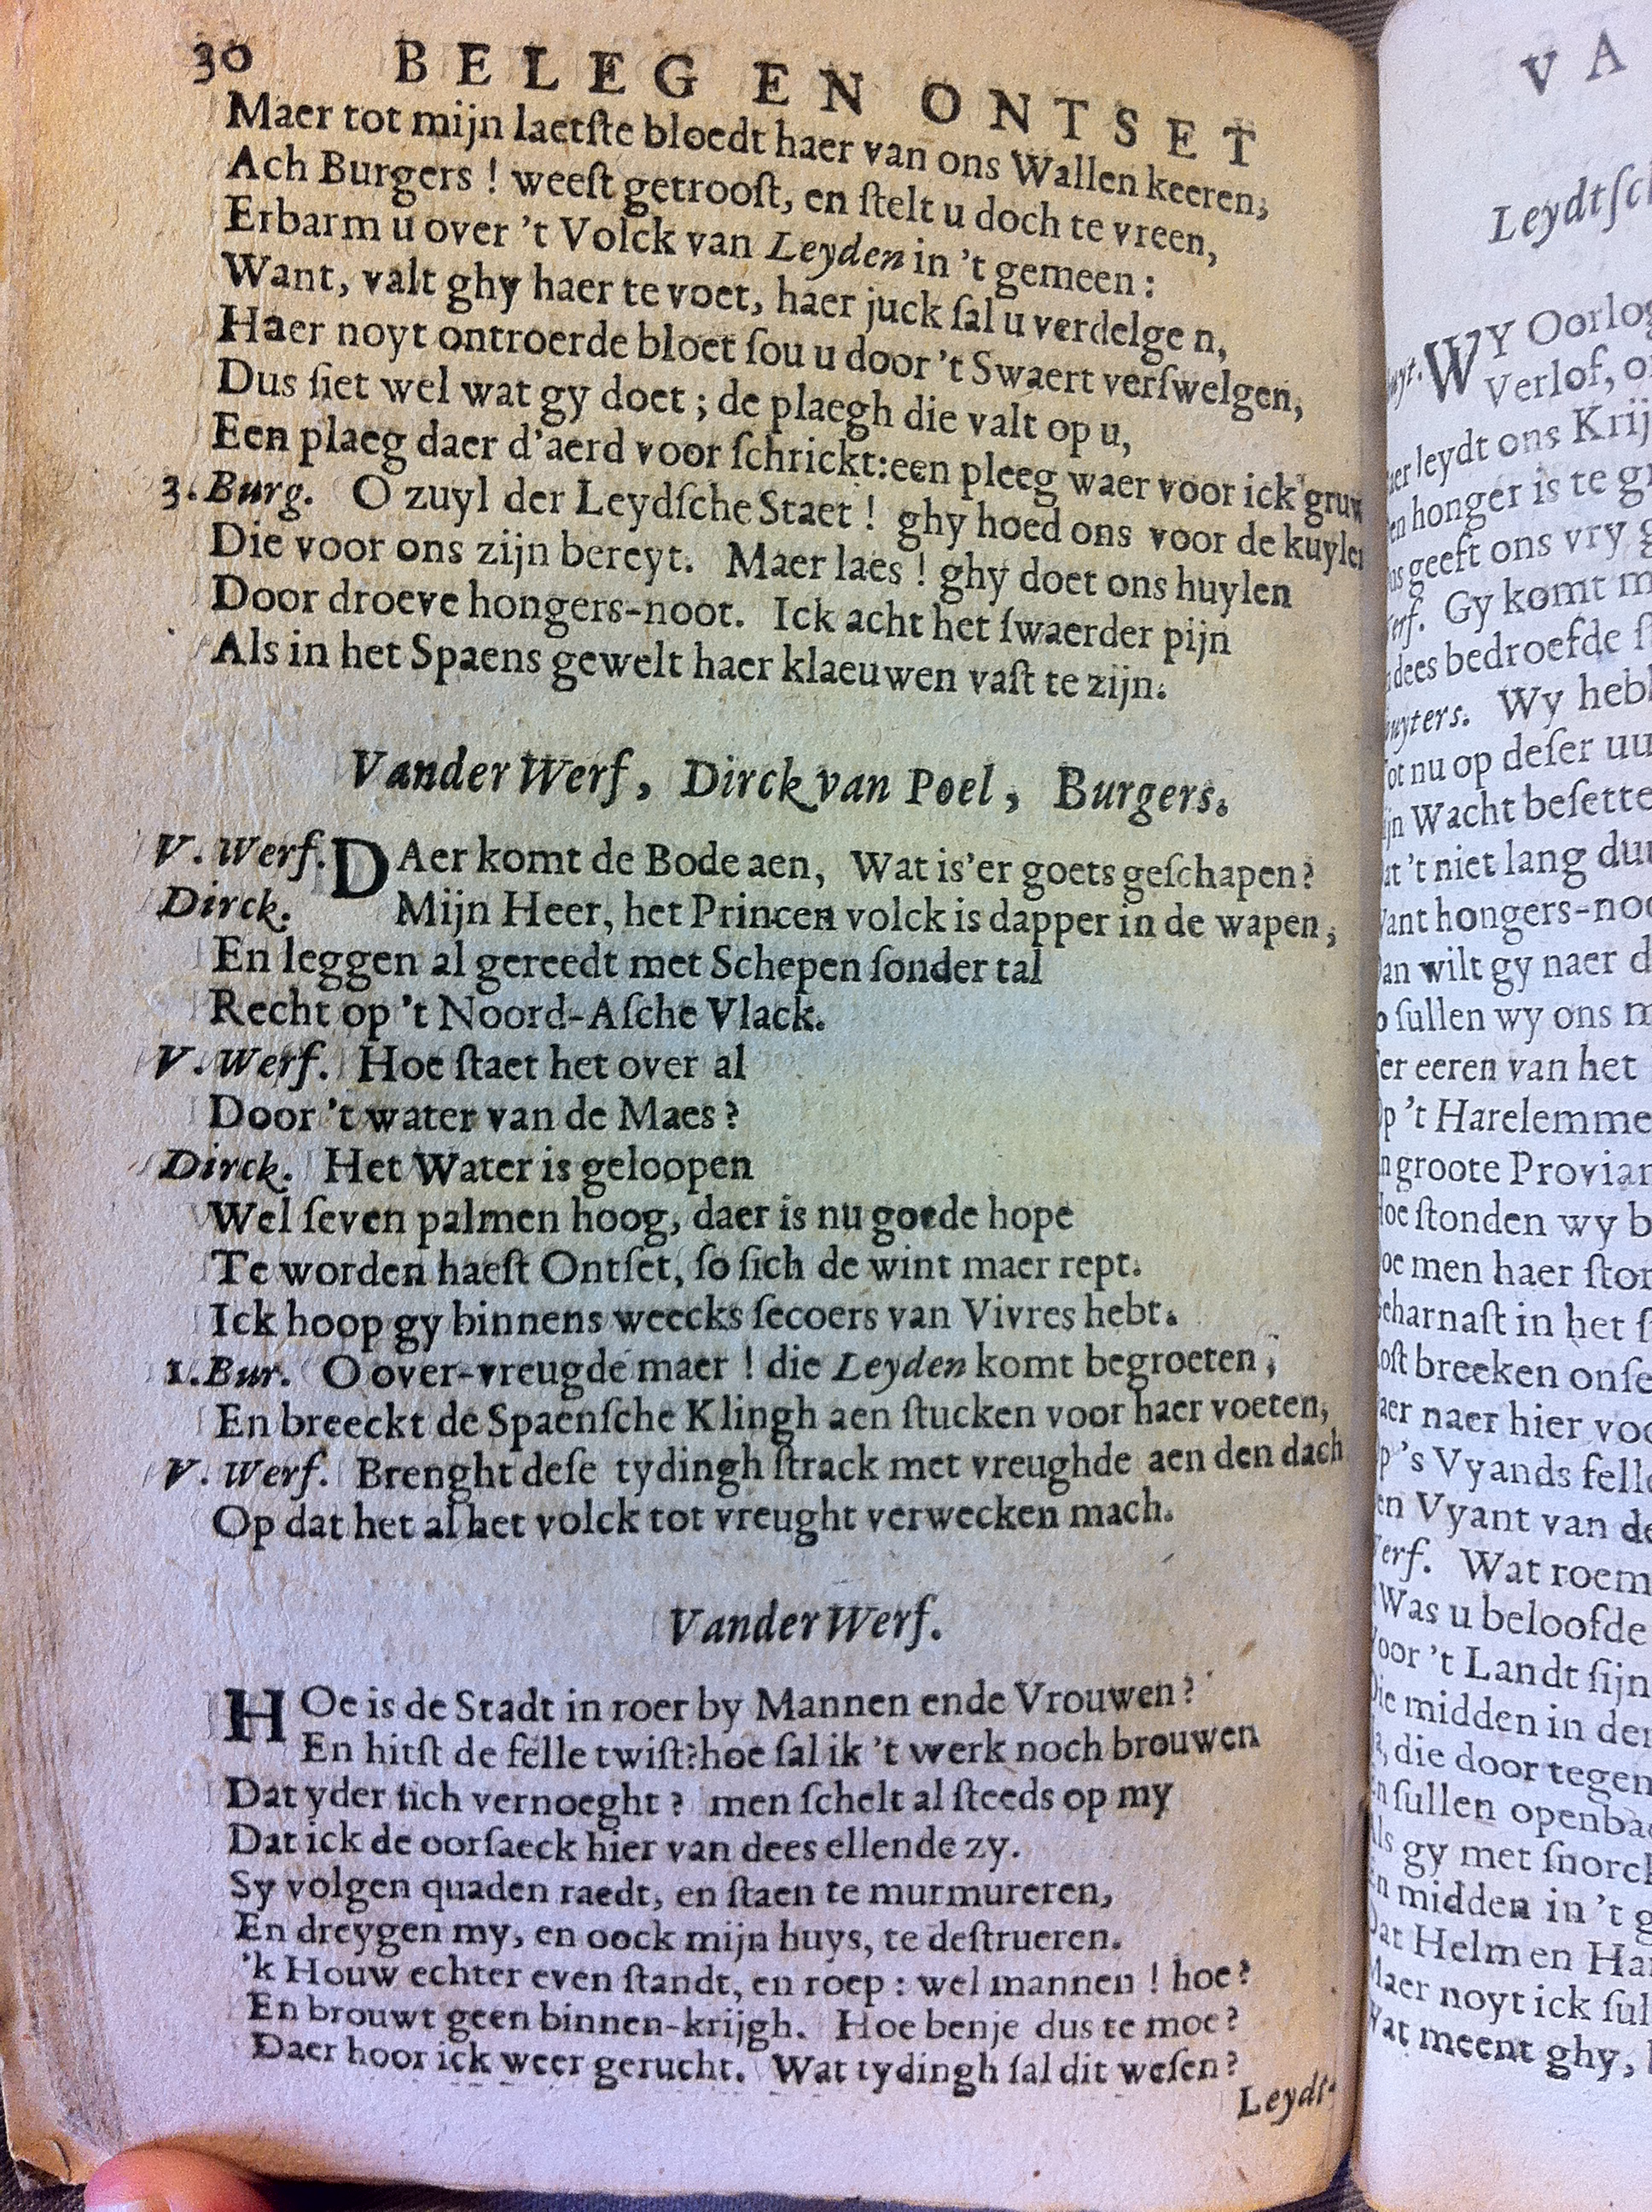 30 BELEG EN ONTSET
Maer tot mijn laetſte bloedt haer van ons Wallen keeren;
Ach Burgers ! weeſt getrooſt, en ſtelt u doch te vreen,
Erbarm u over 't Volck van Leyden in 't gemeen :
Want, valt ghy haer te voet, haer juck ſal u verdelge n,
Haer noyt ontroerde bloet ſou u door 't Swaert verſwelgen,
Dus ſiet wel wat gy doet ; de plaegh die valt op u,
Een plaeg daer d'aerd voor ſchrickt:een pleeg waer voor ick gruw
3. Burg. O zuyl der Leydſche Staet ! ghy hoed ons voor de kuylen
Die voor ons zijn bereyt. Maer laes ! ghy doet ons huylen
Door droeve hongers-noot. Ick acht het ſwaerder pijn
Als in het Spaens gewelt haer klaeuwen vaſt te zijn.
Vander Werf, Dirck van Poel, Burgers.
V. Werf. DAer komt de Bode aen, Wat is'er goets geſchapen?
Dirck. Mijn Heer, het Princen volck is dapper in de wapen,
En leggen al gereedt met Schepen ſonder tal
Recht op 't Noord-Aſche Vlack.
V. Werf. Hoe ſtaet het over al
Door 't water van de Maes?
Dirck. Het Water is geloopen
Wel ſeven palmen hoog, daer is nu goede hope
Te worden haeſt Ontſet, ſo ſich de wint maer rept.
Ick hoop gy binnens weecks ſecoers van Vivres hebt.
1. Bur. O over-vreugde maer ! die Leyden komt begroeten,
En breeckt de Spaenſche Klingh aen ſtucken voor haer voeten,
V. Werf. Brenght deſe tydingh ſtrack met vreughde aen den dach
Op dat het al het volck tot vreught verwecken mach.
Vander Werf.
HOe is de Stadt in roer by Mannen ende Vrouwen?
En hitſt de felle twiſt?hoe ſal ik 't werk noch brouwen
Dat yder ſich vernoeght ? men ſchelt al ſteeds op my
Dat ick de oorſaeck hier van dees ellende zy.
Sy volgen quaden raedt, en ſtaen te murmureren,
En dreygen my, en oock mijn huys, te deſtrueren.
'k Houw echter even ſtandt, en roep : wel mannen ! hoe?
En brouwt geen binnen-krijgh. Hoe benje dus te moe?
Daer hoor ick weer gerucht. Wat tydingh ſal dit weſen?
Leydt-
VA
Leydtſch
WY Oorlog
Verlof, o
leydt ons Krij
honger is te gr
geeft ons vry g
Gy komt m
dees bedroefde ſ
Wy heb
nu op deſer uu
Wacht beſette
't niet lang du
hongers-noo
wilt gy naer d
ſullen wy ons m
eeren van het
't Harelemme
groote Provian
ſtonden wy b
men haer ſtor
in het ſ
breeken onſe
naer hier voo
's Vyands felle
Vyant van de
Wat roem
Was u beloofde
't Landt ſijn
midden in der
die door tegen
ſullen openba
gy met ſnorck
midden in 't g
Helm en Ha
noyt ick ſul
meent ghy,